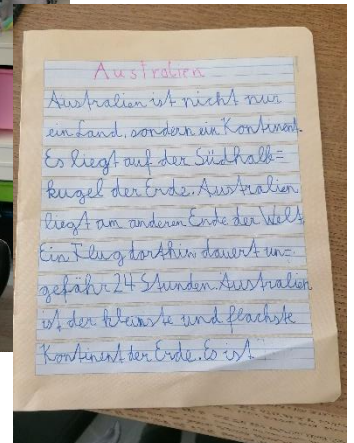 Australien
Australien ist nicht nur
ein Land, sondern ein Kontinent.
Es liegt auf der Südhalb=
kugel der Erde. Australien
liegt am anderen Ende der Welt.
Ein Flug dorthin dauert un=
gefähr 24 Stunden. Australien
ist der kleinste und flachste
Kontinent der Erde. Es ist